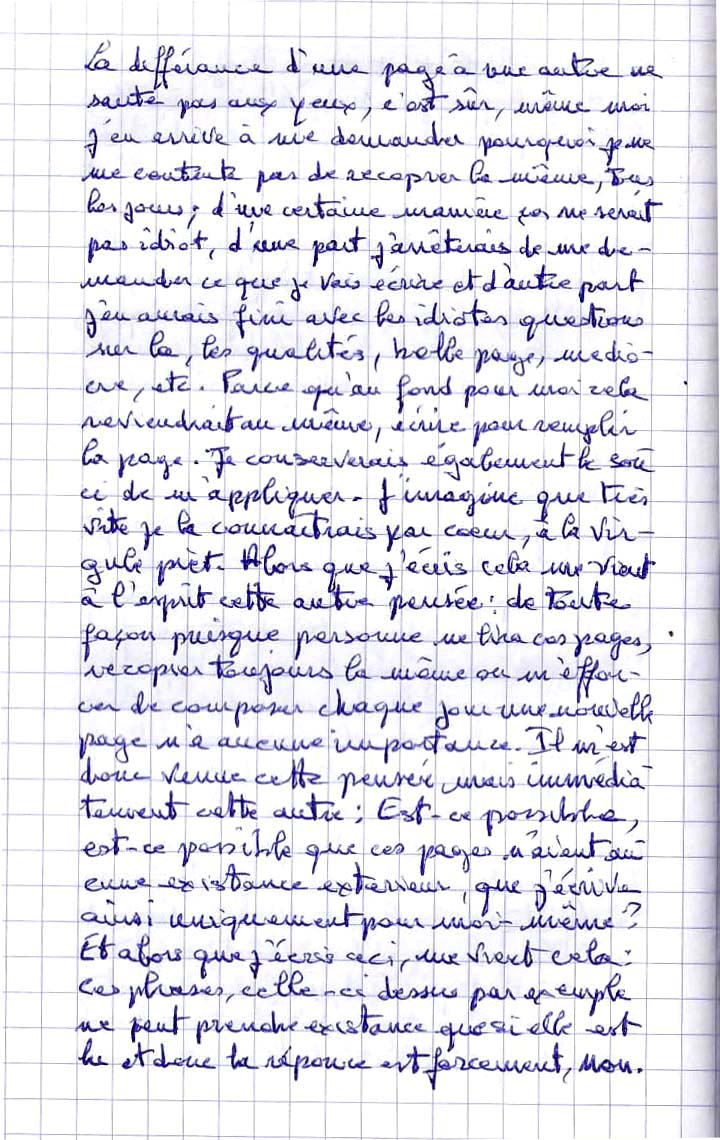 La différance d'une page à une autre ne
saute pas aux yeux, c'est sûr, même moi
j'en arrive à me demander pourquoi je ne
me contente pas de recopier la même, tous
les jours; d'une certaine manière ça ne serait
pas idiot, d'une part j'arrêterais de me de-
mander ce que je vais écrire et d'autre part
j'en aurais fini avec les idiotes questions
sur la, les qualités, belle page, médio-
cre, etc. Parce qu'au fond pour moi cela
reviendrait au même, écrire pour remplir
la page. Je conserverais également le sou
ci de m'appliquer. J'imagine que très
vite je la connaîtrais par coeur, à la vir-
gule prêt. Alors que j'écris cela me vient
à l'esprit cette autre pensée: de toute
façon puisque personne ne lira ces pages,
recopier toujours la même ou m'effor-
cer de composer chaque jour une nouvelle
page n'a aucune importance. Il m'est
donc venue cette pensée, mais immédia
tement cette autre; Est-ce possible,
est-ce possible que ces pages n'aient au
cune existance extérieur, que j'écrive
ainsi uniquement pour moi-même?
Et alors que j'écris ceci, me vient cela:
Ces phrases, celle-ci dessus par exemple
ne peut prendre existance que si elle est
lu et donc la réponce est forcement, non.